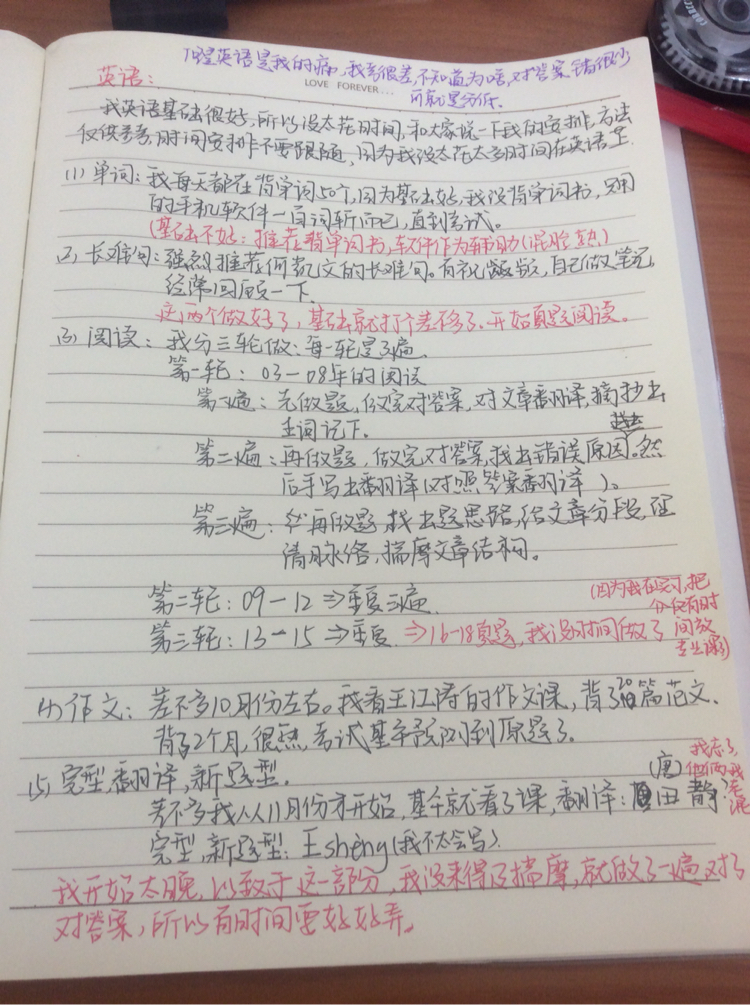 但是英语是我的痛,我考很差,不知道为啥,对答案错很少
可就是分低.
LOVE FOREVER...
英语:
我英语基础很好,所以没太花时间,和大家说一下我的安排,方法
仅供参考,时间安排不要跟随,因为我没太花太多时间在英语上.
(1) 单词:我每天都在背单词50个,因为基础好,我没背单词书,只用
的手机软件—百词斩而已,直到考试.
(基础不好:推荐背单词书,软件作为辅助(混脸熟)
(2) 长难句:强烈推荐何凯文的长难句.有视频版,自己做笔记,
经常回顾一下.
这两个做好了,基础就打个差不多了.开始真题阅读。
(3) 阅读:我分三轮做:每一轮是3遍.
第一轮:03-08年的阅读
第一遍:先做题,做完对答案,对文章翻译,摘抄出
生词记下.
第二遍:再做题,做完对答案,找出错误原因.然
后手写出翻译(对照答案翻译).
第三遍:再做题 找出题思路,给文章分段,理
清脉络,揣摩文章结构。
第二轮:09-12⇒重复三遍.
第三轮:13-15⇒重复.⇒16-18真题,我没时间做了
(因为我在实习,把
仅有时
间放
专业课)
(4) 作文:差不多10月份左右。我看王江涛的作文课,背了20篇范文.
背了2个月,很熟,考试基本预测到原题了.
(5) 完型,翻译,新题型.
差不多我从11月份才开始,基本就看了课,翻译:田静?
(唐)
我忘了
他俩我
老混
完型,新题型:王shēng(我不会写)
我开始太晚,以致于这一部分,我没来得及揣摩,就做了一遍对了
对答案,所以有时间要好好弄。